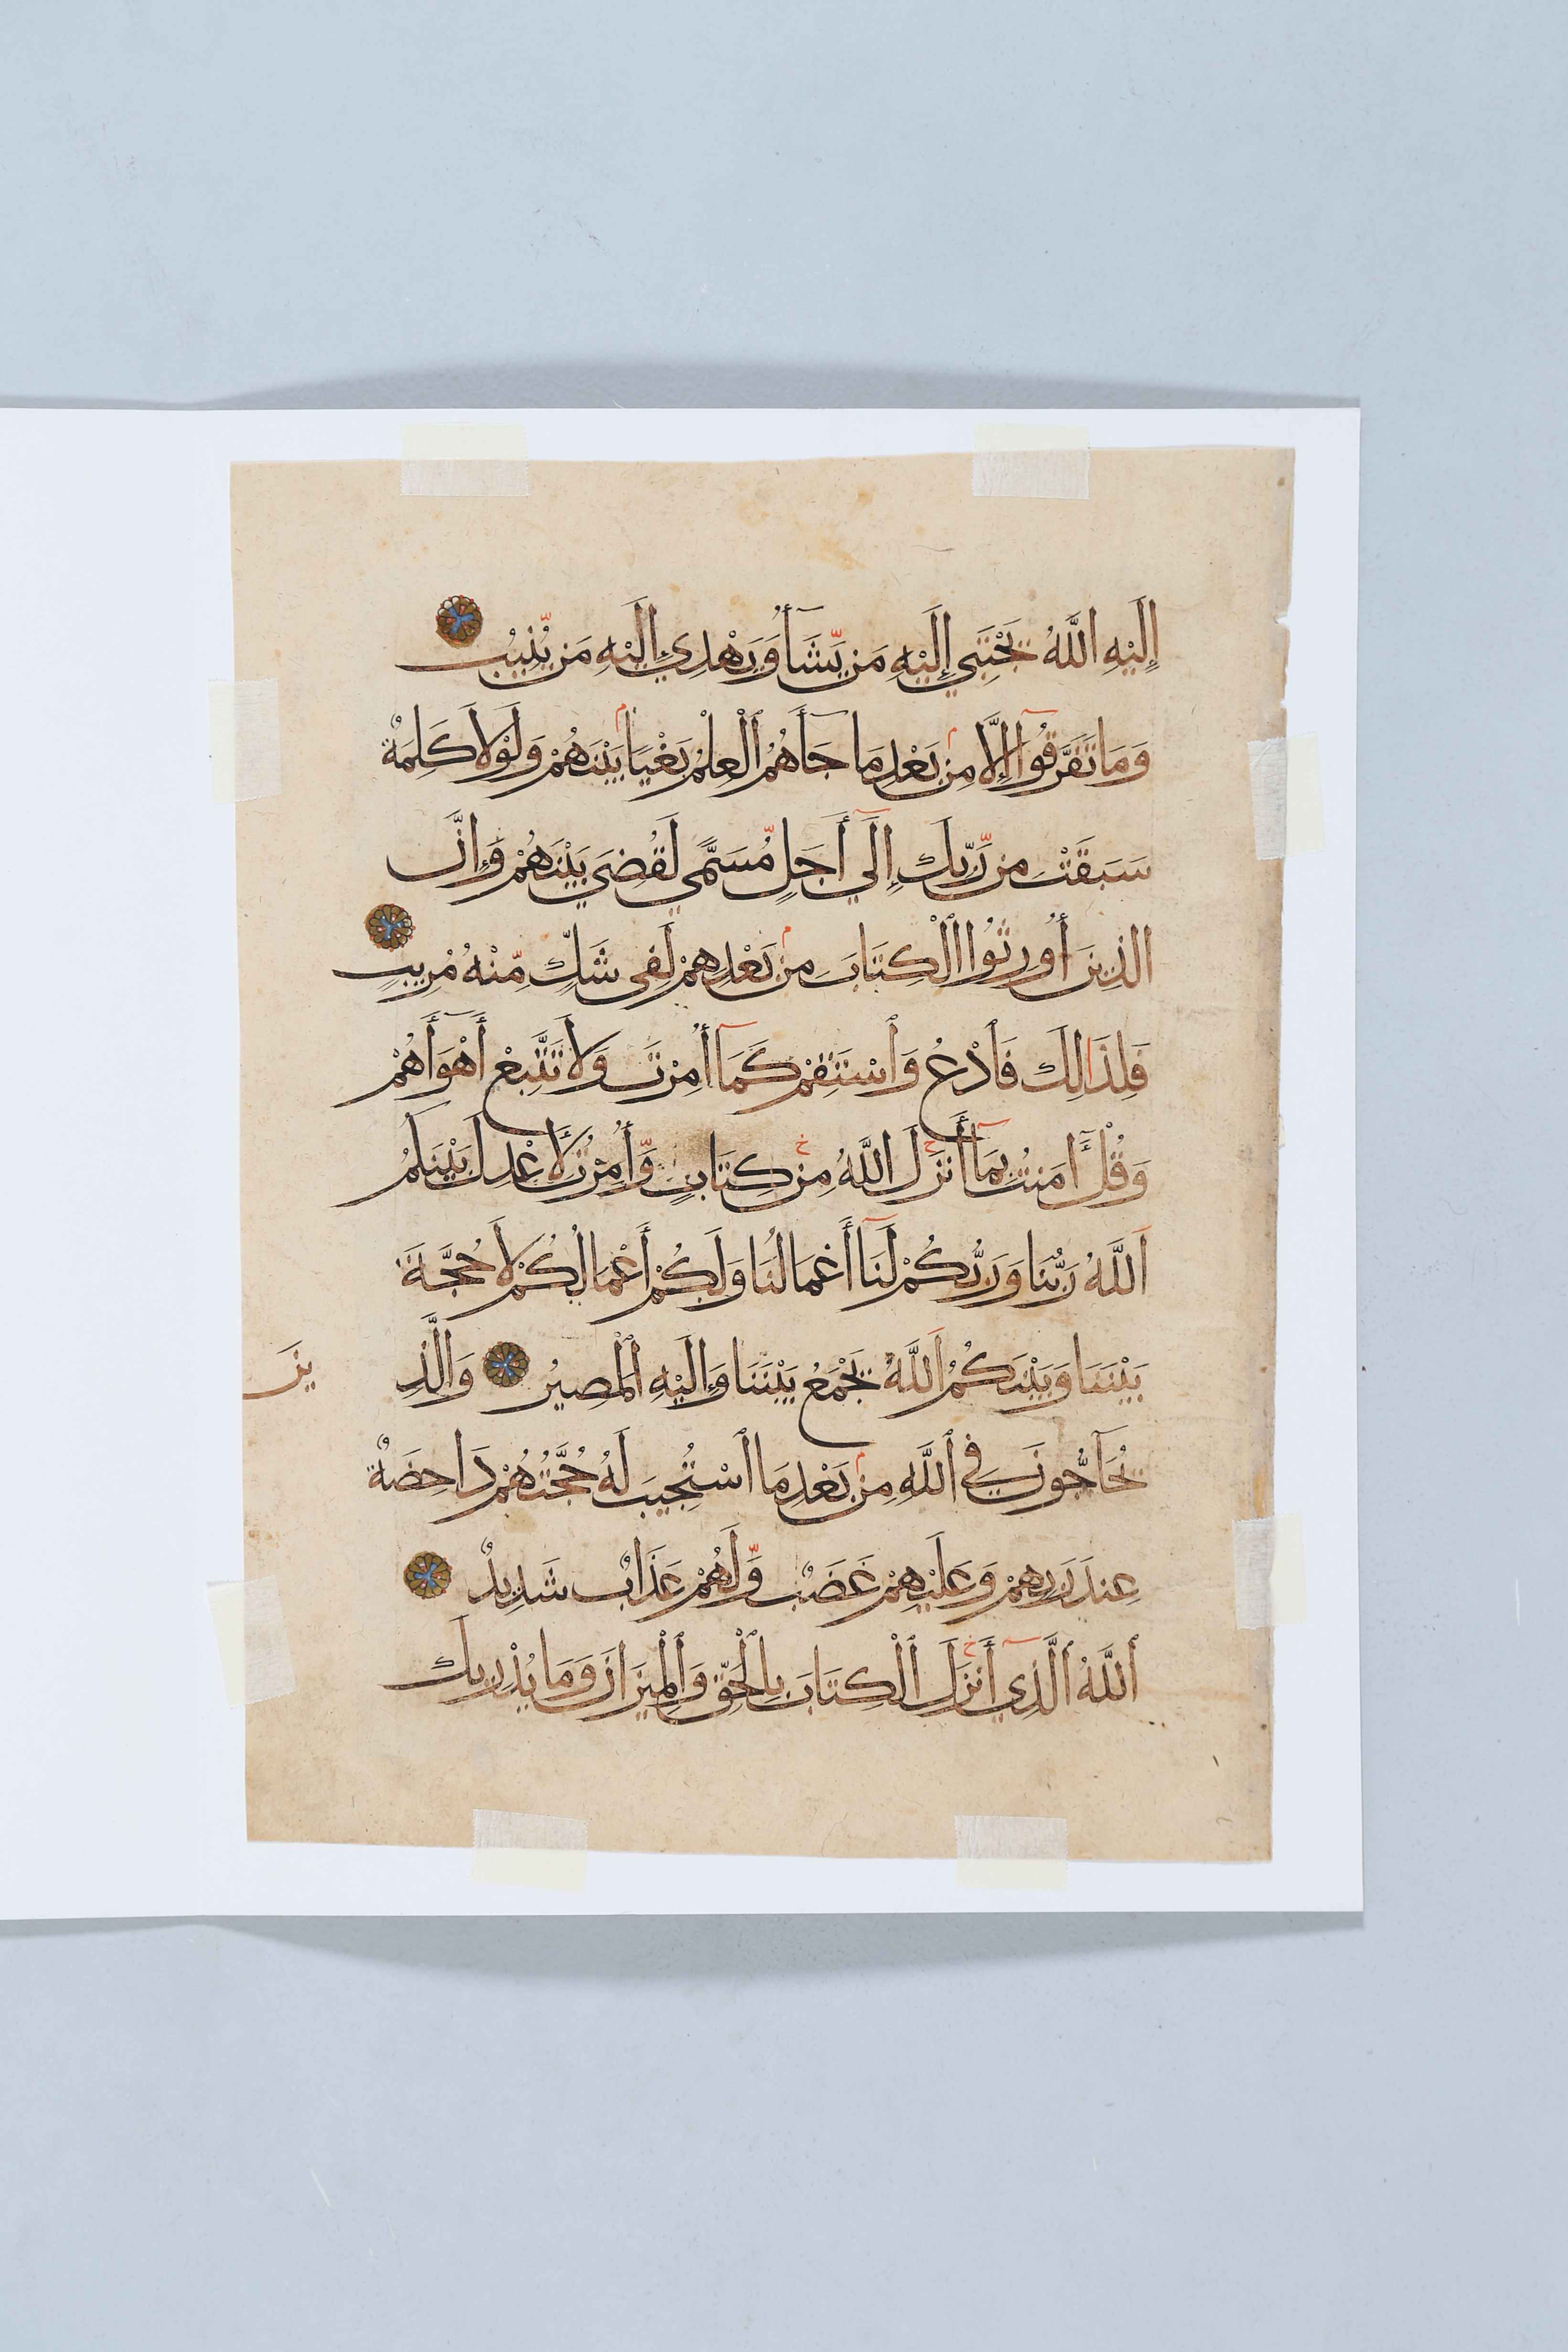 إِلَيْهِ اللَّهُ يَجْتَبِي إِلَيْهِ مَن يَّشَآءُ وَيَهْدِي إِلَيْهِ مَن يُّنِيبُ
وَمَا تَفَرَّقُوآ إِلَّا مِن بَعْدِ مَا جَآءَهُمُ ٱلْعِلْمُ بَغْيًا بَيْنَهُمْ وَلَوْلَا كَلِمَةٌ
سَبَقَتْ مِن رَّبِّكَ إِلَىٰٓ أَجَلٍ مُّسَمًّى لَقُضِيَ بَيْنَهُمْ وَإِنَّ
الَّذِينَ أُورِثُوا الْكِتَابَ مِن بَعْدِهِمْ لَفِي شَكٍّ مِّنْهُ مُرِيبٍ
فَلِذَالِكَ فَادْعُ وَاسْتَقِمْ كَمَآ أُمِرْتَ وَلَا تَتَّبِعْ أَهْوَآءَهُمْ
وَقُلْ ءَامَنتُ بِمَآ أَنزَلَ اللَّهُ مِن كِتَابٍ وَّأُمِرْتُ لِأَعْدِلَ بَيْنَكُمُ
اَللَّهُ رَبُّنَا وَرَبُّكُمْ لَنَآ أَعْمَالُنَا وَلَكُمْ أَعْمَالُكُمْ لَا حُجَّةَ
بَيْنَنَا وَبَيْنَكُمُ اَللَّهُ يَجْمَعُ بَيْنَنَا وَإِلَيْهِ الْمَصِيرُ وَالَّذِ ينَ
يُحَآجُّونَ فِي ٱللَّهِ مِن بَعْدِ مَا ٱسْتُجِيبَ لَهُ حُجَّتُهُمْ دَاحِضَةٌ
عِندَ رَبِّهِمْ وَعَلَيْهِمْ غَضَبٌ وَّلَهُمْ عَذَابٌ شَدِيدٌ
ٱللَّهُ ٱلَّذِيٓ أَنزَلَ ٱلْكِتَابَ بِالْحَقِّ وَٱلْمِيزَانَ وَمَا يُدْرِيكَ